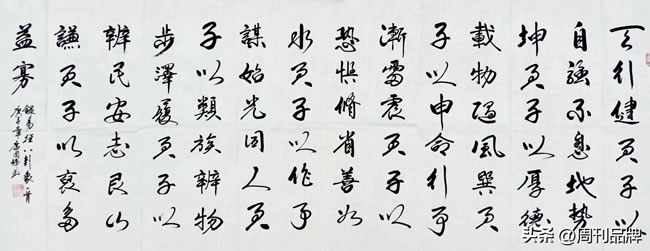 天行健君子以
自強不息地勢
坤君子以厚德
載物隨風巽君
子以申命行事
漸雷震君子以
恐懼脩省善如
水君子以作事
謀始光同人君
子以類族辨物
步澤履君子以
辨民安志艮山
謙君子以裒多
益寡
錄易經八卦象言
庚子年
头条 @周刊品牌